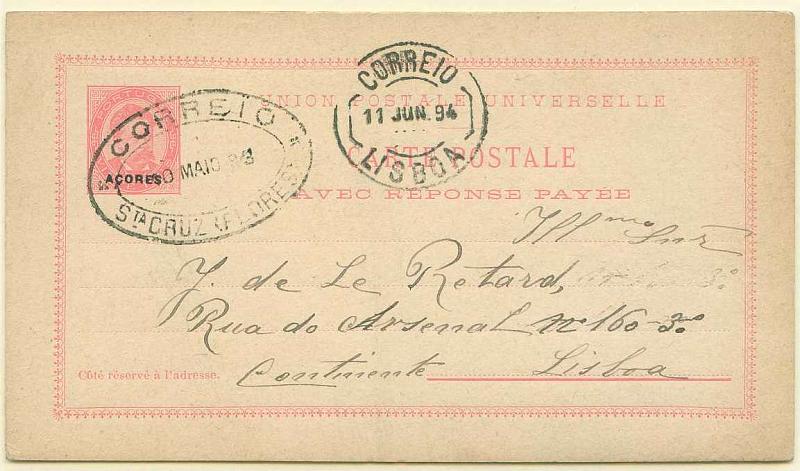 UNION POSTALE UNIVERSELLE
CARTE POSTALE
AVEC RÉPONSE PAYÉE
AÇORES
CORREIO
MAIO
STA CRUZ (FLORES)
CORREIO
11 JUN. 94
LISBOA
Illmo Snr
J. de Le Retard,
Rua do Arsenal nº 160-3º
Continente Lisboa
Côté réservé à l'adresse.